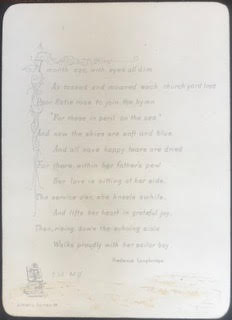 A month ago, with eyes all dim
As tossed and moaned each churchyard tree
Poor Katie rose to join the hymn
"For those in peril on the sea."
And now the skies are soft and blue
And all save happy tears are dried
For there, within her father's pew
Her love is sitting at her side.
The service o'er, she kneels awhile,
And lifts her heart in grateful joy,
Then, rising down the echoing aisle
Walks proudly with her sailor boy
Frederick Langbridge